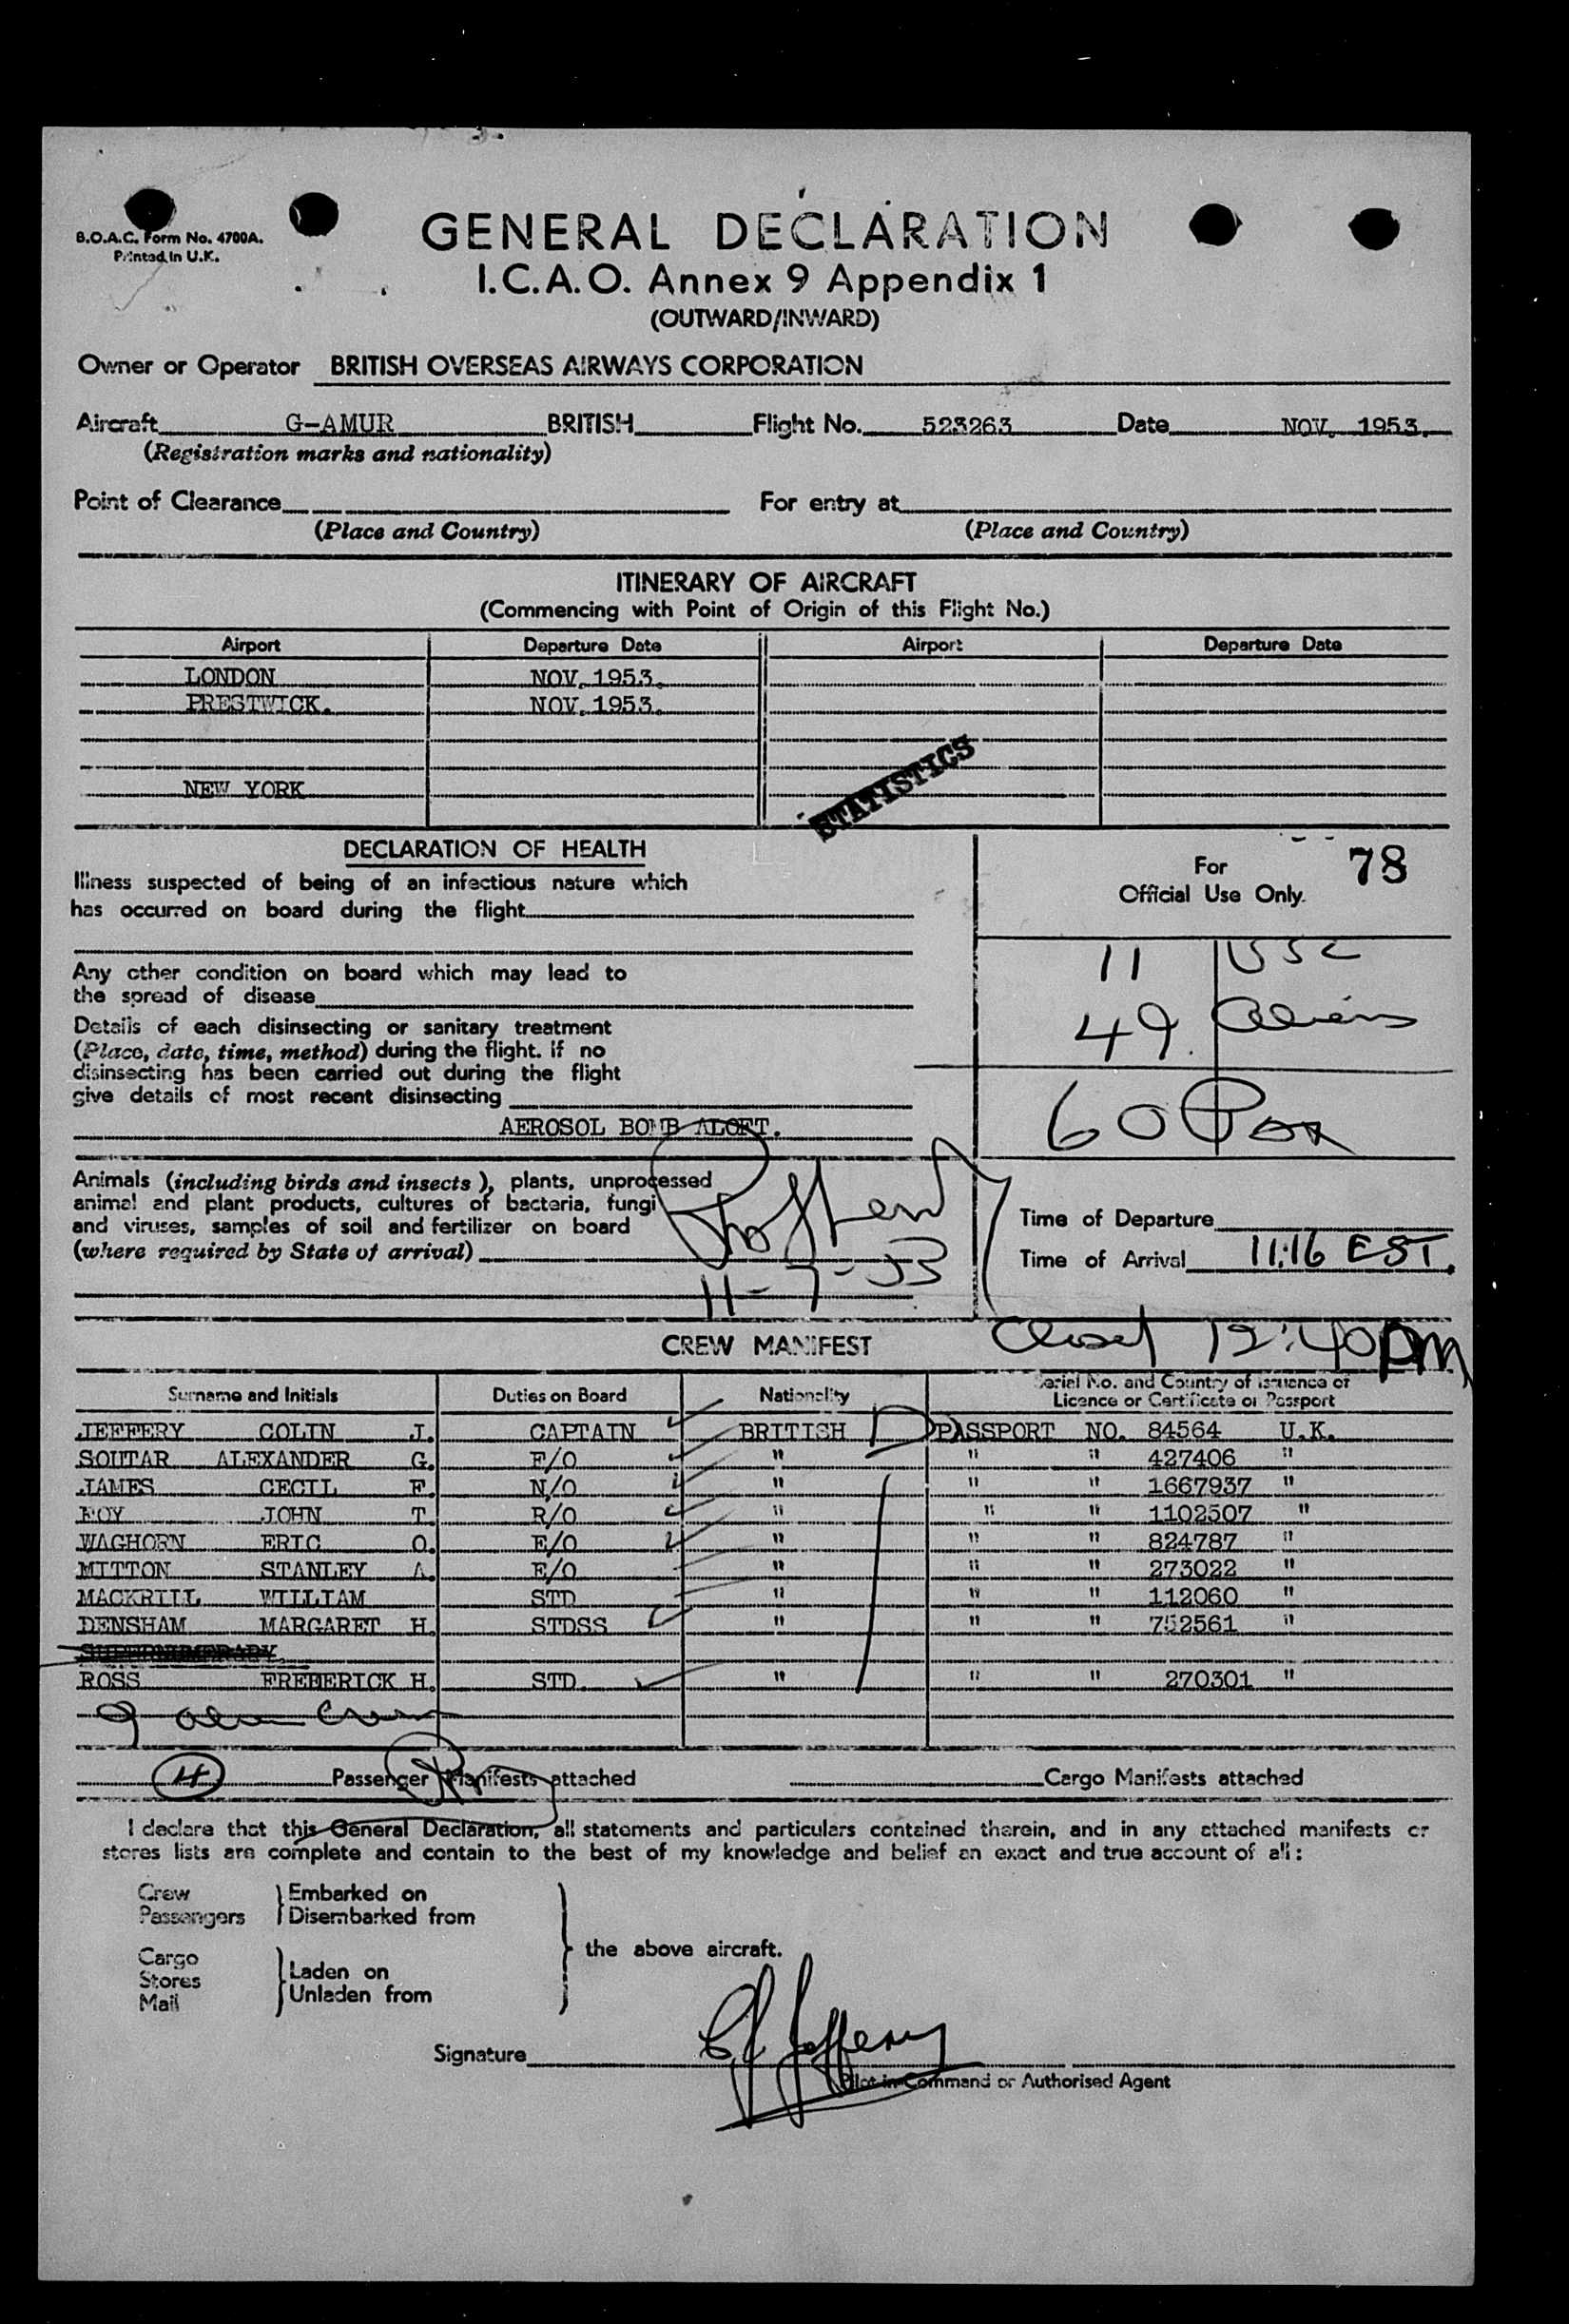 B.O.A.C. Form No. 4700A.
Printed in U.K.
GENERAL DECLARATION
I.C.A.O. Annex 9 Appendix 1
(OUTWARD/INWARD)
Owner or Operator BRITISH OVERSEAS AIRWAYS CORPORATION
Aircraft G-AMUR BRITISH Flight No. 523263 Date NOV. 1953.
(Registration marks and nationality)
Point of Clearance For entry at
(Place and Country) (Place and Country)
ITINERARY OF AIRCRAFT
(Commencing with Point of Origin of this Flight No.)
Airport Departure Date Airport Departure Date
LONDON NOV. 1953.
PRESTWICK. NOV. 1953.
NEW YORK
STATISTICS
DECLARATION OF HEALTH
Illness suspected of being of an infectious nature which
has occurred on board during the flight
Any other condition on board which may lead to
the spread of disease
Details of each disinsecting or sanitary treatment
(Place, date, time, method) during the flight. If no
disinsecting has been carried out during the flight
give details of most recent disinsecting
AEROSOL BOMB ALOFT.
Animals (including birds and insects), plants, unprocessed
animal and plant products, cultures of bacteria, fungi
and viruses, samples of soil and fertilizer on board
(where required by State of arrival)
11-7-53
For 78
Official Use Only.
11 USC
49 Aliens
60 Pax
Time of Departure
Time of Arrival 11:16 EST.
Closed 12:40 pm
CREW MANIFEST
Surname and Initials Duties on Board Nationality Serial No. and Country of issuance of
Licence or Certificate or Passport
JEFFERY COLIN J. CAPTAIN BRITISH PASSPORT NO. 84564 U.K.
SOUTAR ALEXANDER G. F/O " " " 427406 "
JAMES CECIL F. N/O " " " 1667937 "
JOHN T. R/O " " " 1102507 "
WAGHORN ERIC O. E/O " " " 824787 "
MITTON STANLEY A. E/O " " " 273022 "
MACKRILL WILLIAM STD " " " 112060 "
DENSHAM MARGARET H. STDSS " " " 752561 "
SUPERNUMERARY.
ROSS FREDERICK H. STD. " " " 270301 "
9 alien Crew
4 Passenger Manifests attached Cargo Manifests attached
I declare that this General Declaration, all statements and particulars contained therein, and in any attached manifests or
stores lists are complete and contain to the best of my knowledge and belief an exact and true account of all:
Crew Embarked on
Passengers Disembarked from
the above aircraft.
Cargo
Stores Laden on
Mail Unladen from
Signature C J Jeffery
Pilot-in-Command or Authorised Agent